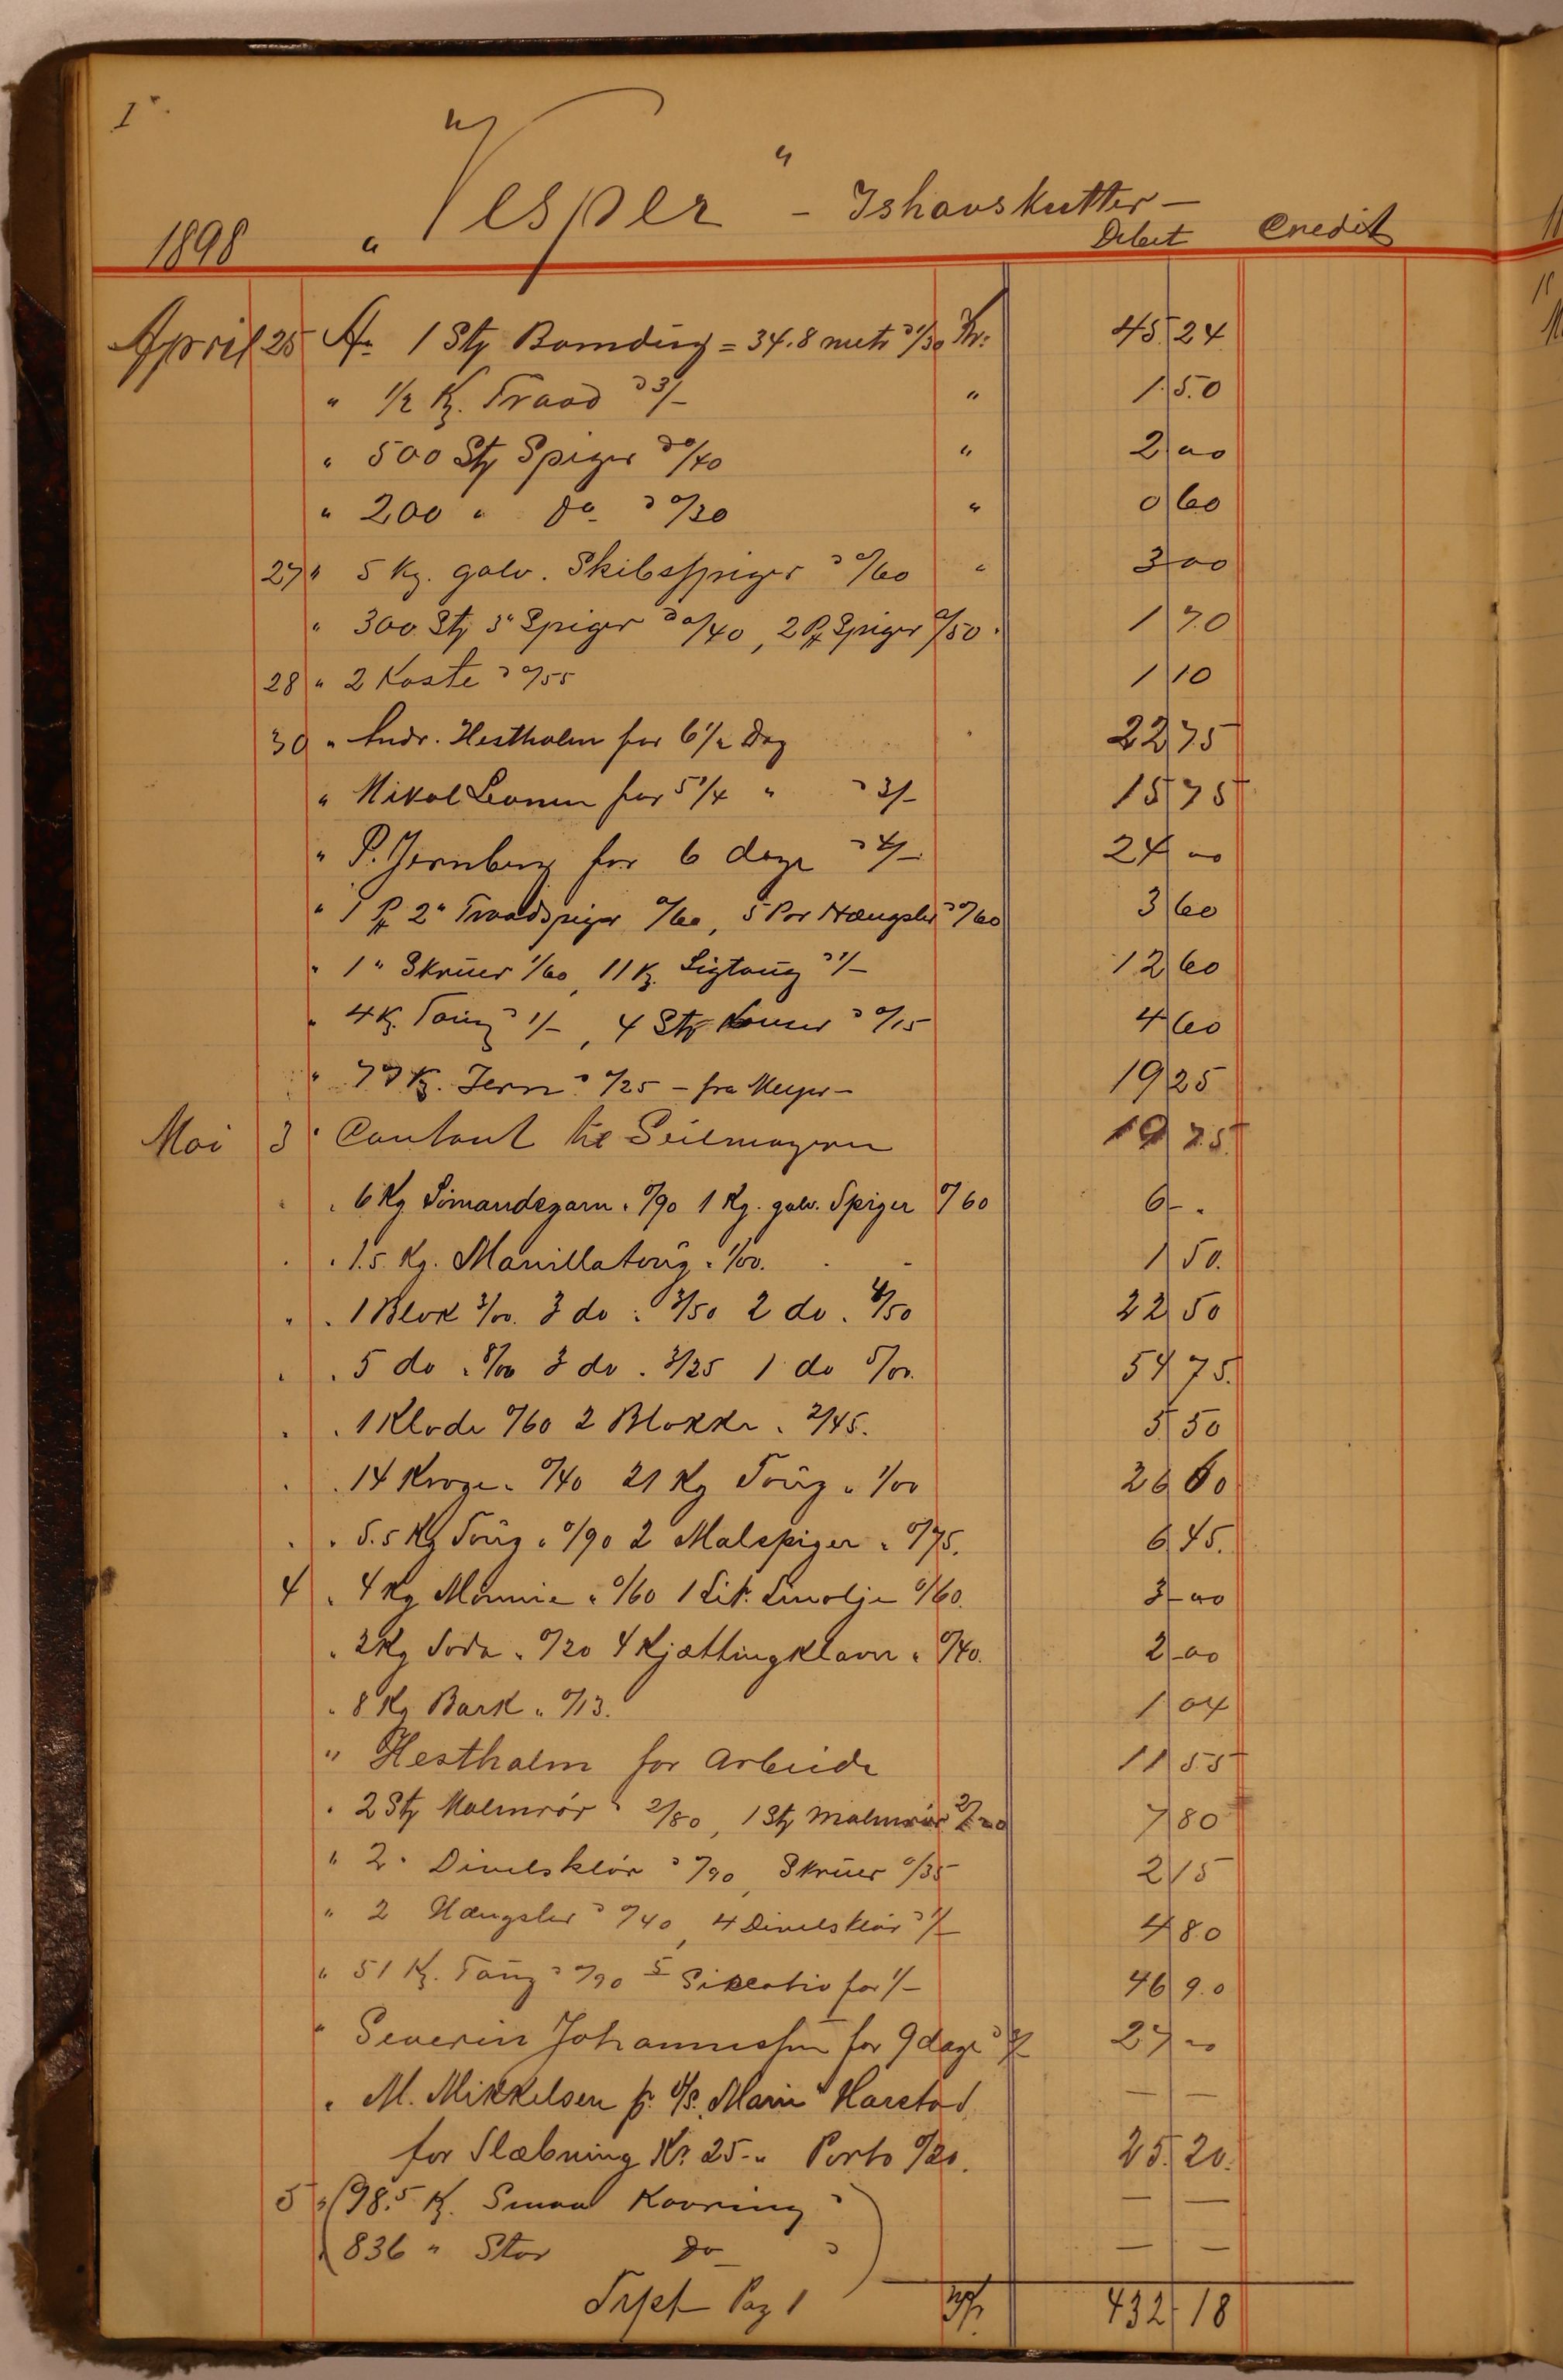 I
"Vesper" - Ishavskutter -
1898 Debet Credit
April 25 An 1 Stk Bomdug = 34.8 metr à 1/30 Kr: 45.24
" 1/2 K. Traad à 3/- " 1.50
" 500 Stk Spiger à 0/40 " 2 00
" 200 " do à 0/30 " 0 60
27 " 5 Kg. galv. Skibsspiger à 0/60 " 3 00
" 300 Stk 3" Spiger à 0/40, 2 Pk Spiger 0/50 " 1 70
28 " 2 Koste à 0/55 1 10
30 " Andr. Hestholm for 6 1/2 Dag 22 75
" Nikol for 5 1/4 " à 3/- 15 75
" P. Jernberg for 6 dage à 4/- 24 00
" 1 Pk 2" Traadspiger 0/60, 5 Par Hængsler à 0/60 3 60
" 1 " Skruer 1/60, 11 K. Ligtoug à 1/- 12 60
" 4 K. Toug à 1/-, 4 Stk Kouser à 0/15 4 60
" 77 K. Jern à 0/25 - fra Meyer - 19 25
Mai 3 " Contant til Seilmageren 19 75
" " 6 Kg Simandsgarn " 0/90 1 Kg. galv. Spiger 0/60 6 - "
" " 1.5 Kg. Manillatoug " 1/00. 1 50.
" " 1 Blok 3/00. 3 do " 3/50 2 do " 4/50 22 50
" " 5 do " 8/00 3 do " 3/25 1 do 5/00. 54 75.
" " 1 Klode 0/60 2 Blokke " 2/45. 5 50
" " 14 Kroge " 0/40 21 Kg Toug " 1/00 26 60
" " 5.5 Kg Toug " 0/90 2 Malspiger " 0/75. 6 45.
4 " 4 Kg Mønnie " 0/60 1 Lit. Linolje 0/60. 3-00
" 2 Kg Soda " 0/20 4 Kjættingklaver " 0/40. 2-00
" 8 Kg Bark " 0/13. 1 04
" Hestholm for Arbeide 11 55
" 2 Stk Malmrør à 2/80, 1 Stk Malmrør 2/20 7 80
" 2 " Divelsklør à 0/90, Skruer 0/35 2 15
" 2 Hængsler à 0/40, 4 Divelsklør à 1/- 4 80
" 51 K. Toug à 0/90 Sikkativ for 1/- 46 90
" Severin Johannessen for 9 dage à 3/- 27 00
" M. Mikkelsen p. D/S. "Marie" Harstad — —
for Slæbning Kr 25-" Porto 0/20. 25.20.
5 " (98.5 K. Smaa Kovring à — —
" (836 " Stor Do à — —
Trpt Pag 1 Kr. 432-18